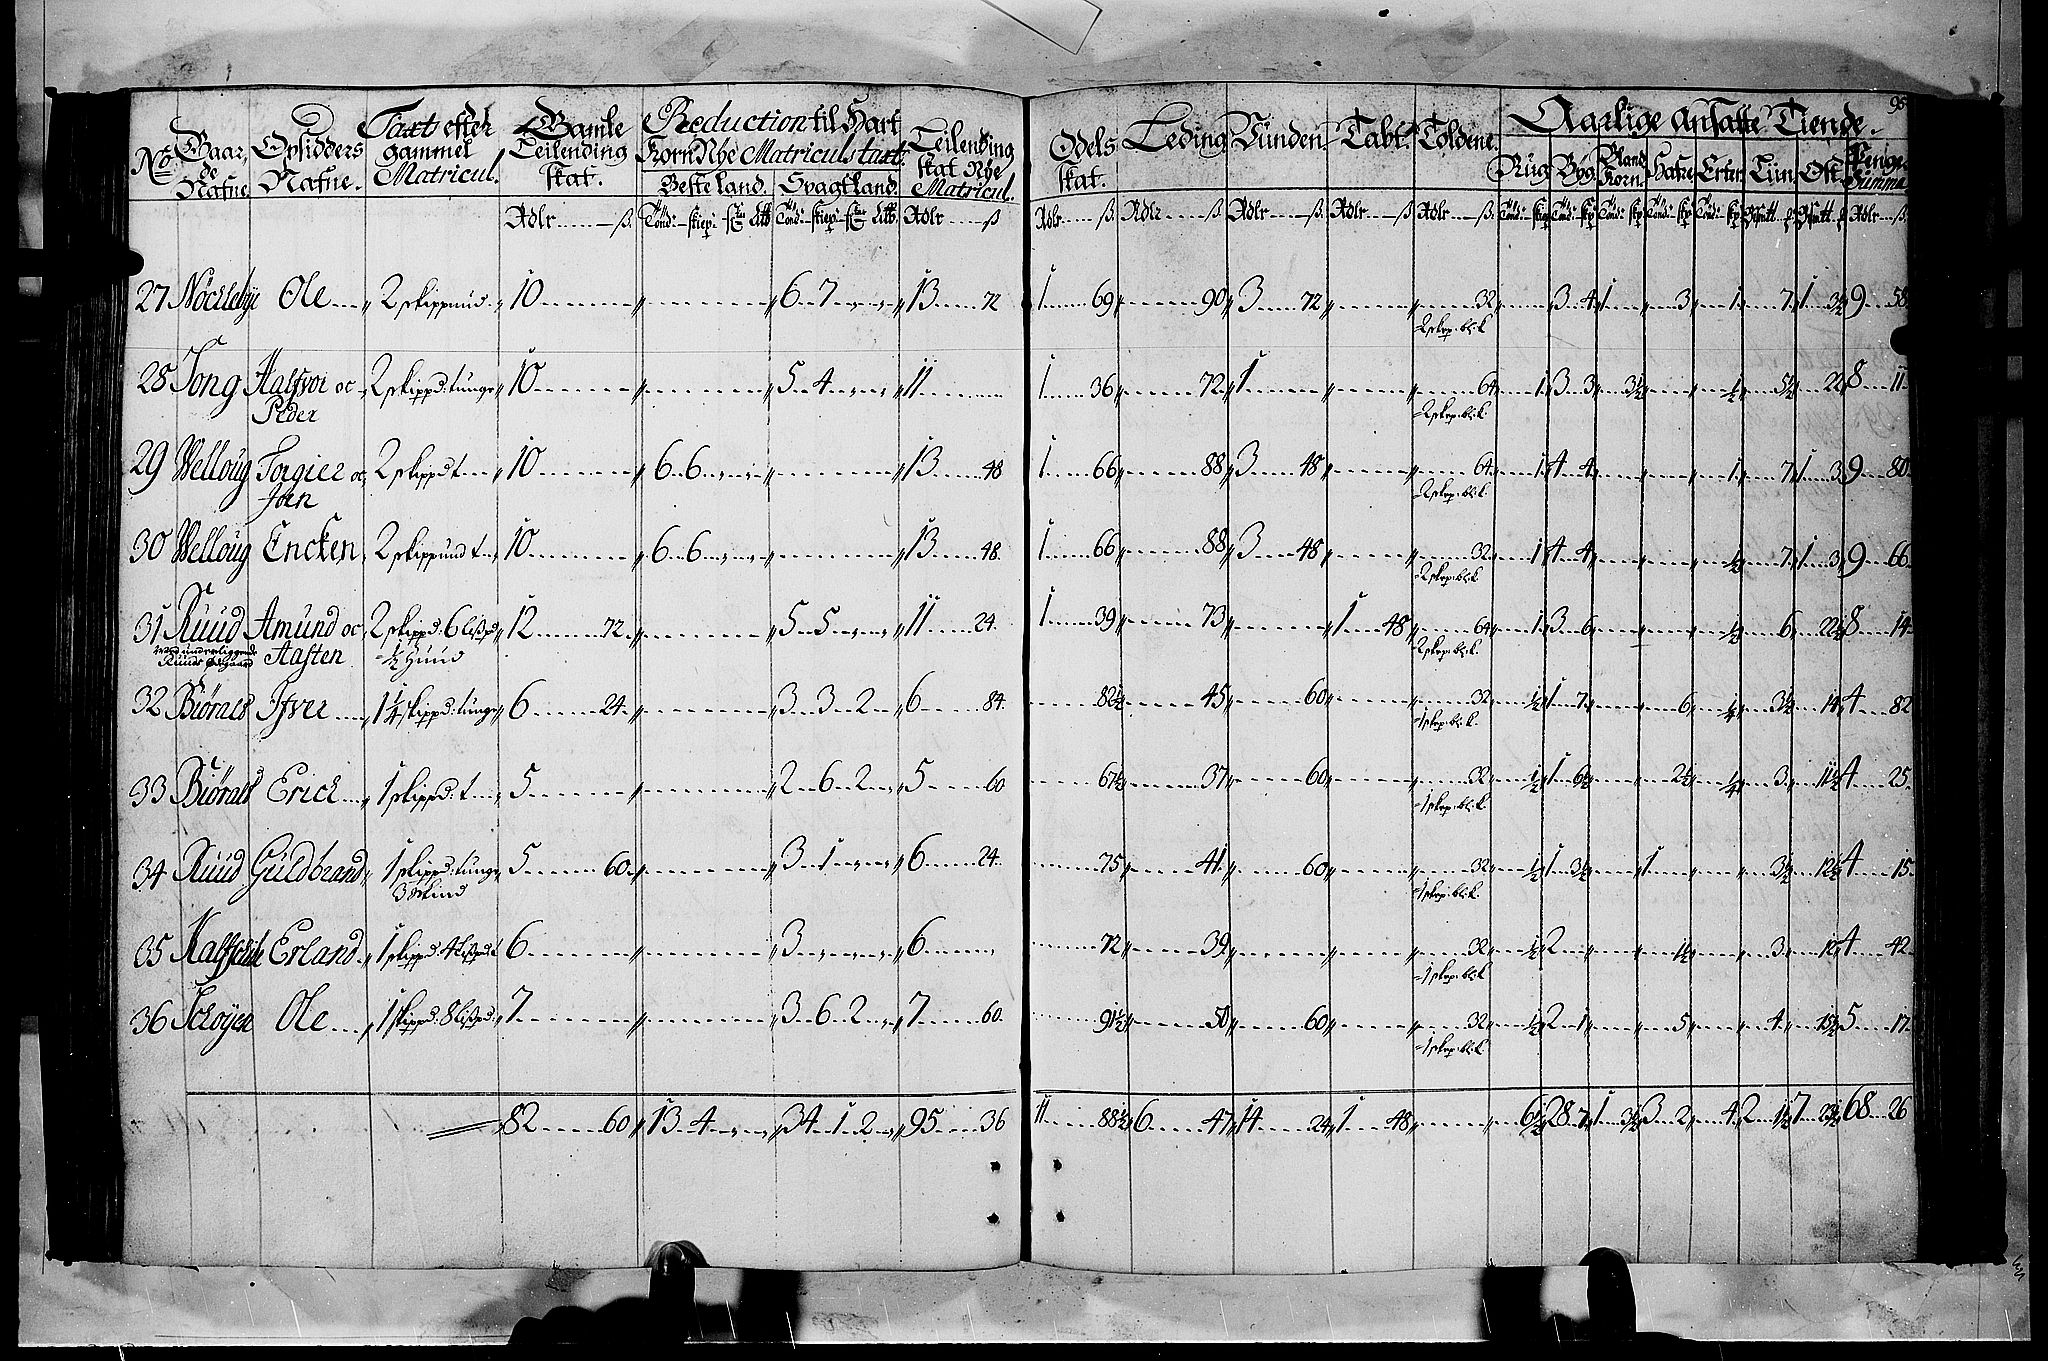 95
No Gaardenes Nafne. Opsidders Nafne. Taxt efter gammel Matricul. Gamle Leilending skat. Reduction til Hart Korn Nye Matriculs taxt. Leilending skat Nye Matricul. Odels skat. Leding Vunden Tabt. Aarlige Ansatte Tiende.
Beste land. Svagt land. Rug Byg Bland Korn. Hafre Erter Liin Ost Penge Summa
Rdlr ß. Rdlr ß Rdlr ß. Rdlr ß. Rdlr ß. Rdlr ß Rdlr ß. Rdlr ß.
27 Ole 2 skippund. 10 6 7 13 72 1 69 90 3 72 32 3 4 1 3 1 7 1 3½ 9 58
2 skp: bl: k
28 Tong Halfvor oc 2 skippd: tunge 10 5 4 11 1 36 72 1 64 1 3 3 3½ ½ 5½ 22 8 11
Peder 2 skp: bl: k
29 Velloug Torgier oc 2 skippd t 10 6 6 13 48 1 66 88 3 48 64 1 4 4 1 7 1 3 9 80
Joen 2 skp: bl: k
30 Velloug Encken 2 skippund t 10 6 6 13 48 1 66 88 3 48 32 1 4 4 ½ 7 1 3 9 66
2 skp: bl: k
31 Ruud Amund oc 2 skippd: 6 lispd 12 72 5 5 11 24 1 39 73 1 48 64 1 3 6 ½ 6 22½ 8 14
med underliggende Aasten ½ Huud 2 skp: bl: k
32 Ifver 1¼ skippd: tunge 6 24 3 3 2 6 84 82½ 45 60 32 ½ 1 7 6 ¼ 3½ 14 4 82
1 skp: bl: k
33 Erich 1 skippd: t 5 2 6 2 5 60 67½ 37 60 32 ½ 1 6½ 2½ ¼ 3 11½ 4 25
1 skp: bl: k
34 Ruud Guldbrand 1 skippd: tunge 5 60 3 1 6 24 75 41 60 32 ½ 1 3½ 1 3½ 12½ 4 15
3 Skind 1 skp: bl: k
35 Erland 1 skippd: 4 lispd t 6 3 6 72 39 32 ½ 2 1½ 3 12 4 42
1 skp: bl: k
36 Ole 1 skippd: 8 lispd: 7 3 6 2 7 60 91½ 50 60 32 ½ 2 1 5 4 15½ 5 17
1 skp: bl: k
82 60 13 4 34 1 2 95 36 11 88½ 6 47 14 24 1 48 6½ 28 7 1 3½ 3 2 4 2 1½ 7 23½ 68 26